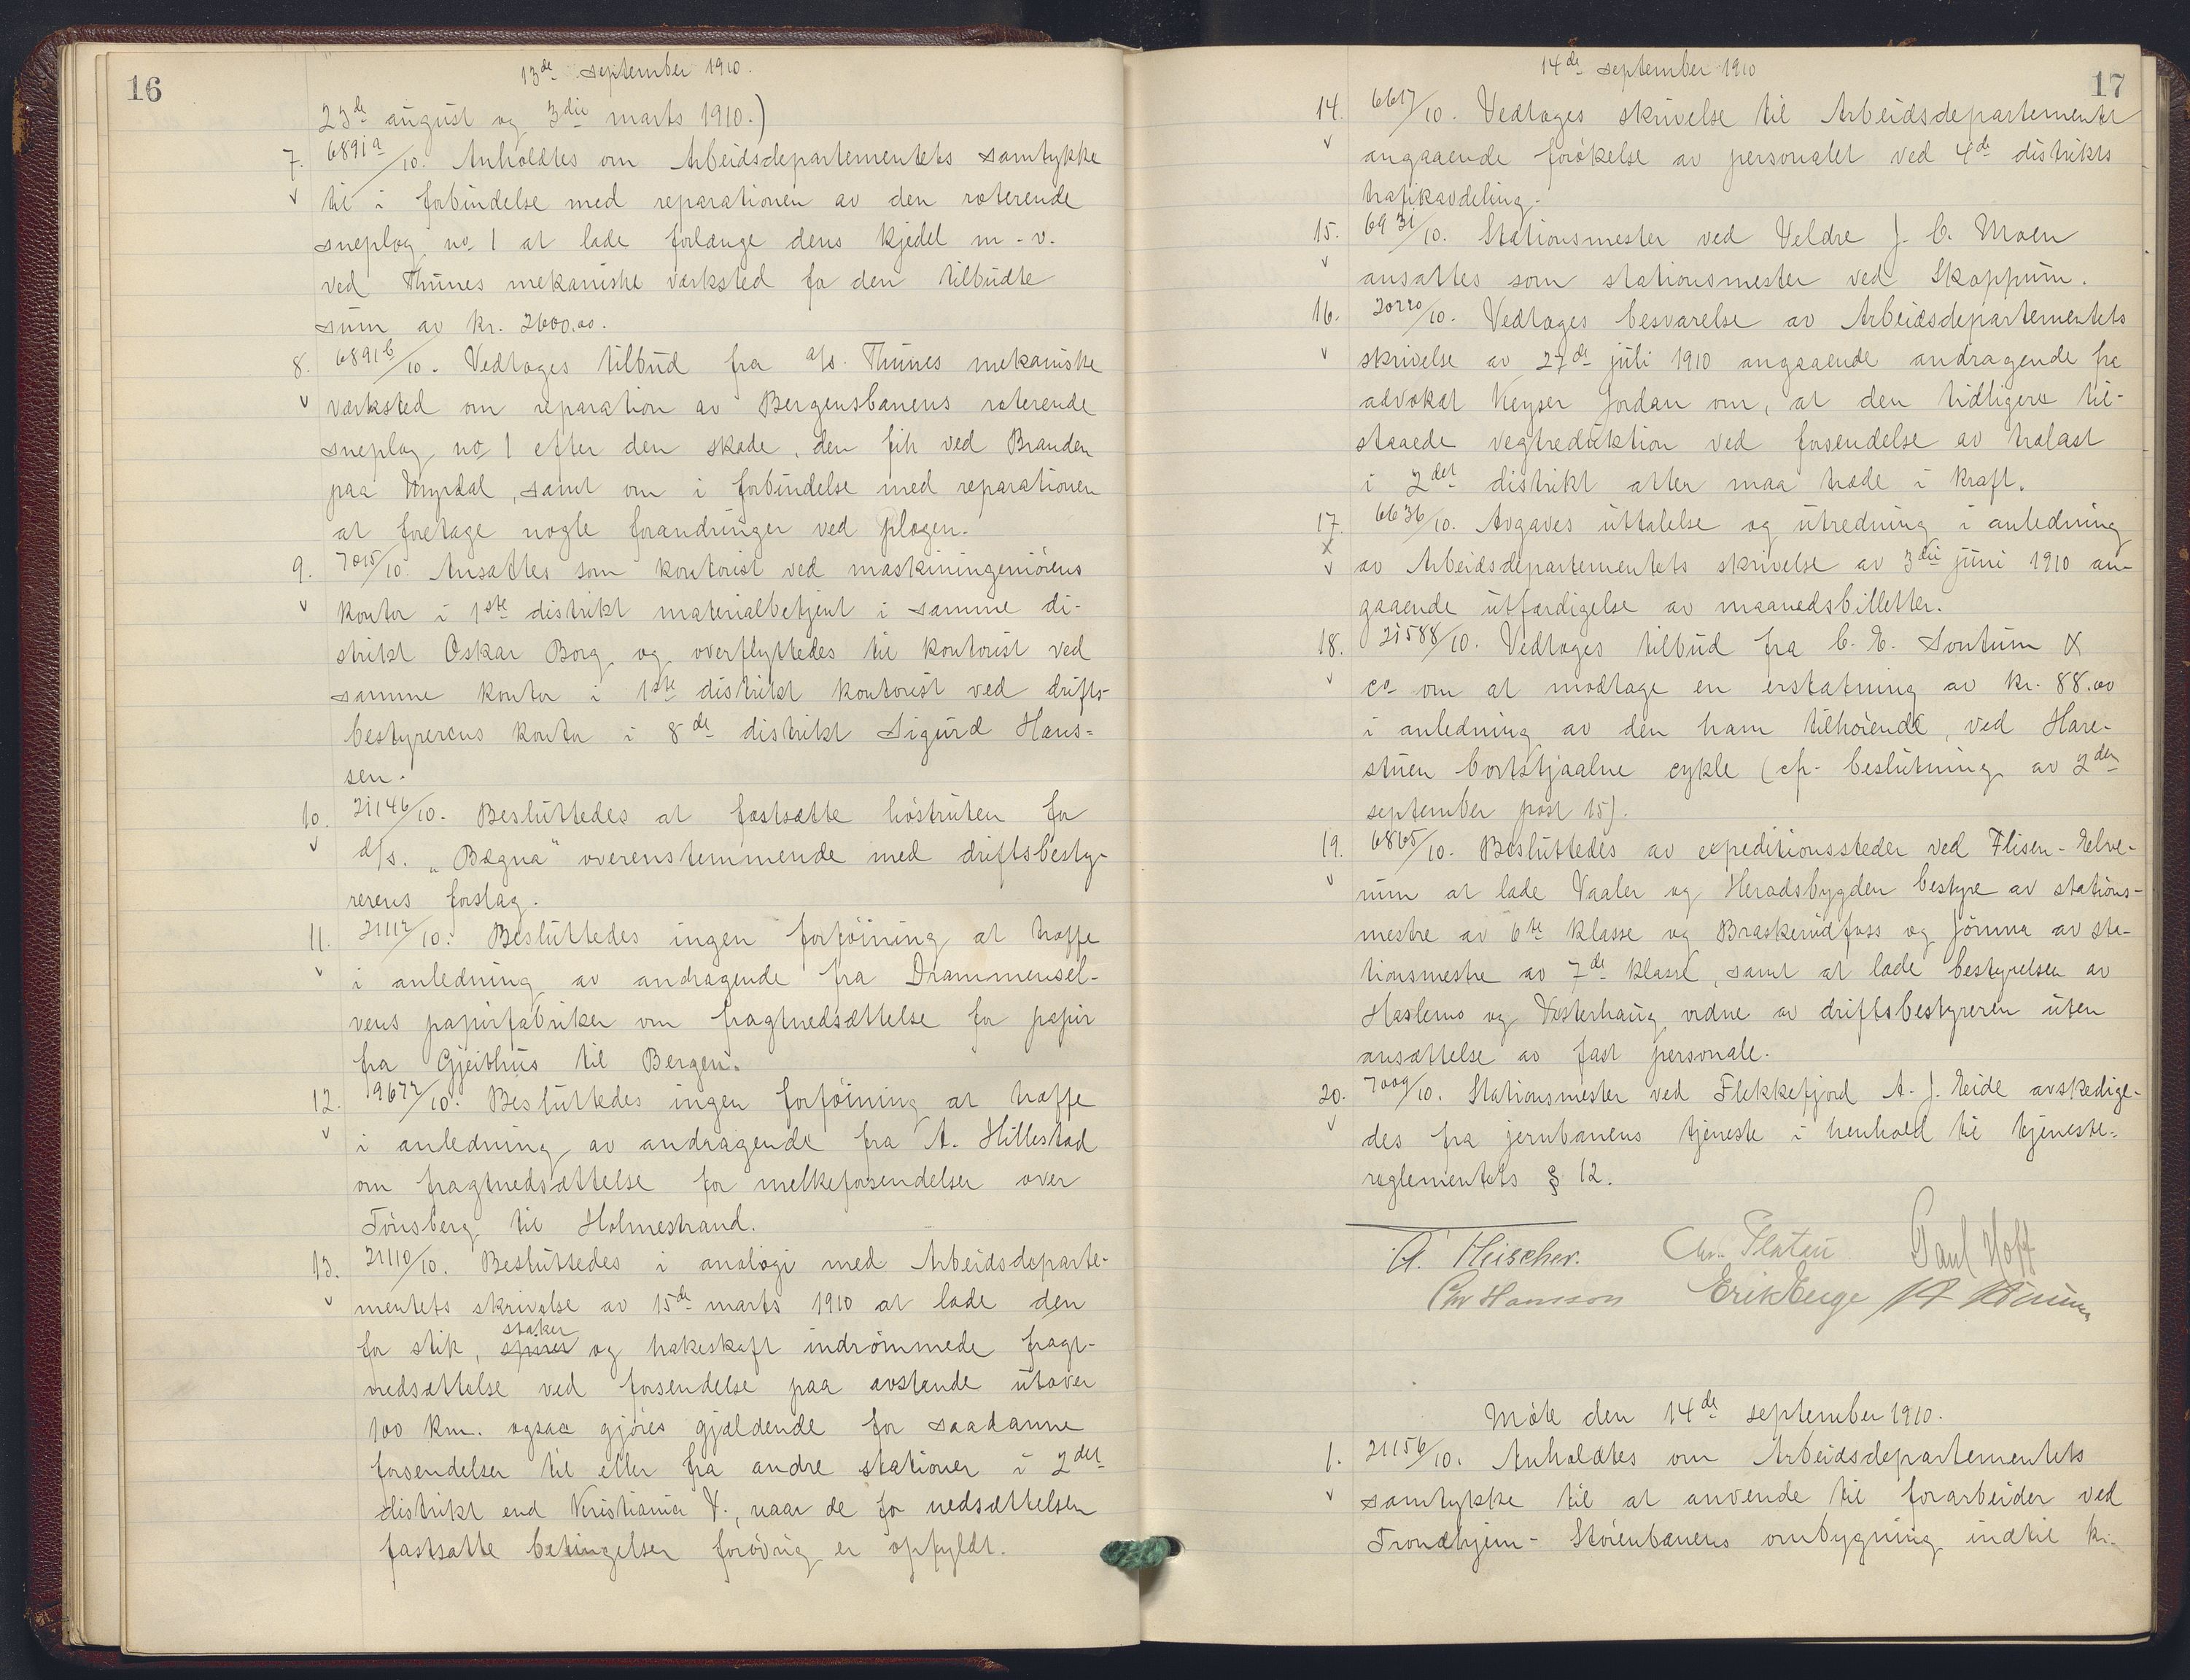 16
13de september 1910.
23de august og 3die marts 1910.)
7. 6891a/10. Anholdtes om Arbeidsdepartementets samtykke
v til i forbindelse med reparationen av den roterende
sneplog no. 1 at lade forlænge dens kjedel m.v.
ved Thunes mekaniske værksted for den tilbudte
sum av kr. 2600.00.
8. 6891b/10. Vedtoges tilbud fra a/s. Thunes mekaniske
v værksted om reparation av Bergensbanens roterende
sneplog no 1 efter den skade, den fik ved Branden
paa Myrdal, samt om i forbindelse med reparationen
at foretage nogle forandringer ved plogen.
9. 7015/10. Ansattes som kontorist ved maskiningeniørens
v kontor i 1ste distrikt materialbetjent i samme di-
strikt Oskar Borg og overflyttedes til kontorist ved
samme kontor i 1ste distrikt kontorist ved drifts-
bestyrerens kontor i 8de distrikt Sigurd Hans=
sen.
10. 21146/10. Besluttedes at fastsætte høstruten for
v d/s. "Bægna" overenstemmende med driftsbesty-
rerens forslag.
11. 21112/10. Besluttedes ingen forføining at træffe
v i anledning av andragende fra Drammensel-
vens papirfabriker om fragtnedsættelse for papir
fra Gjeithus til Bergen.
12. 19672/10. Besluttedes ingen forføining at træffe
v i anledning av andragende fra A. Hillestad
om fragtnedsættelse for melkeforsendelser over
Tønsberg til Holmestrand.
13. 21110/10. Besluttedes i analogi med Arbeidsdeparte-
v mentets skrivelse av 15de marts 1910 at lade den
staker
for stik, spirer og hakeskaft indrømmede fragt-
nedsættelse ved forsendelse paa avstande utover
100 km. ogsaa gjøres gjældende for saadanne
forsendelser til eller fra andre stationer i 2det
distrikt end Kristiania V., naar de for nedsættelsen
fastsatte betingelser forøvrig er opfyldt.
14de september 1910
17
14. 6617/10. Vedtoges skrivelse til Arbeidsdepartementet
v angaaende forøkelse av personalet ved 4de distrikts
trafikavdeling.
15. 6931/10. Stationsmester ved Veldre J. C. Moen
v ansattes som stationsmester ved Skoppum.
16. 20220/10. Vedtoges besvarelse av Arbeidsdepartementets
v skrivelse av 27de juli 1910 angaaende andragende fra
advokat Keyser Jordan om, at den tidligere til-
staaede vegtreduktion ved forsendelse av trælast
i 2det distrikt atter maa træde i kraft.
17. 6636/10. Avgaves uttalelse og utredning i anledning
x
v av Arbeidsdepartementets skrivelse av 3die juni 1910 an-
gaaende utfærdigelse av maanedsbilletter.
18. 21588/10. Vedtoges tilbud fra C. E. Sontum &
v co om at modtage en erstatning av kr. 88.00
i anledning av den ham tilhørende, ved Hare-
stuen bortstjaalne cykle (cfr. beslutning av 2den
september post 15).
19. 6865/10. Besluttedes av expeditionssteder ved Flisen-Elve-
v rum at lade Vaaler og Heradsbygden bestyre av stations-
mestre av 6te klasse og Braskerudfoss og Jømna av sta-
tionsmestre av 7de klasse, samt at lade bestyrelsen av
Haslemo og Vesterhaug ordne av driftsbestyreren uten
ansættelse av fast personale.
20. 7009/10. Stationsmester ved Flekkefjord A. J. Eide avskedige-
v des fra jernbanens tjeneste i henhold til tjeneste=
reglementets § 12.
A. Fleischer. Chr. Platou Paul Hoff
Chr Hansson Erik Enge
Møte den 14de september 1910.
1. 21156/10. Anholdtes om Arbeidsdepartementets
v samtykke til at anvende til forarbeider ved
Trondhjem-Størenbanens ombygning indtil kr.